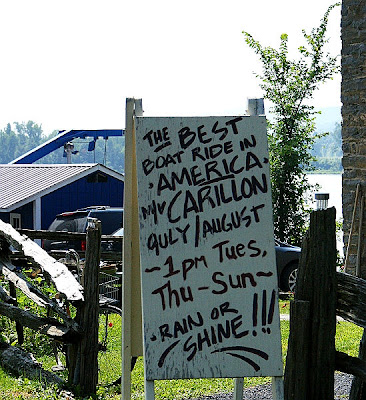 THE BEST
BOAT RIDE IN
AMERICA
M/V CARILLON
JULY/AUGUST
~1pm TUES,
THU-SUN~
RAIN OR
SHINE!!!